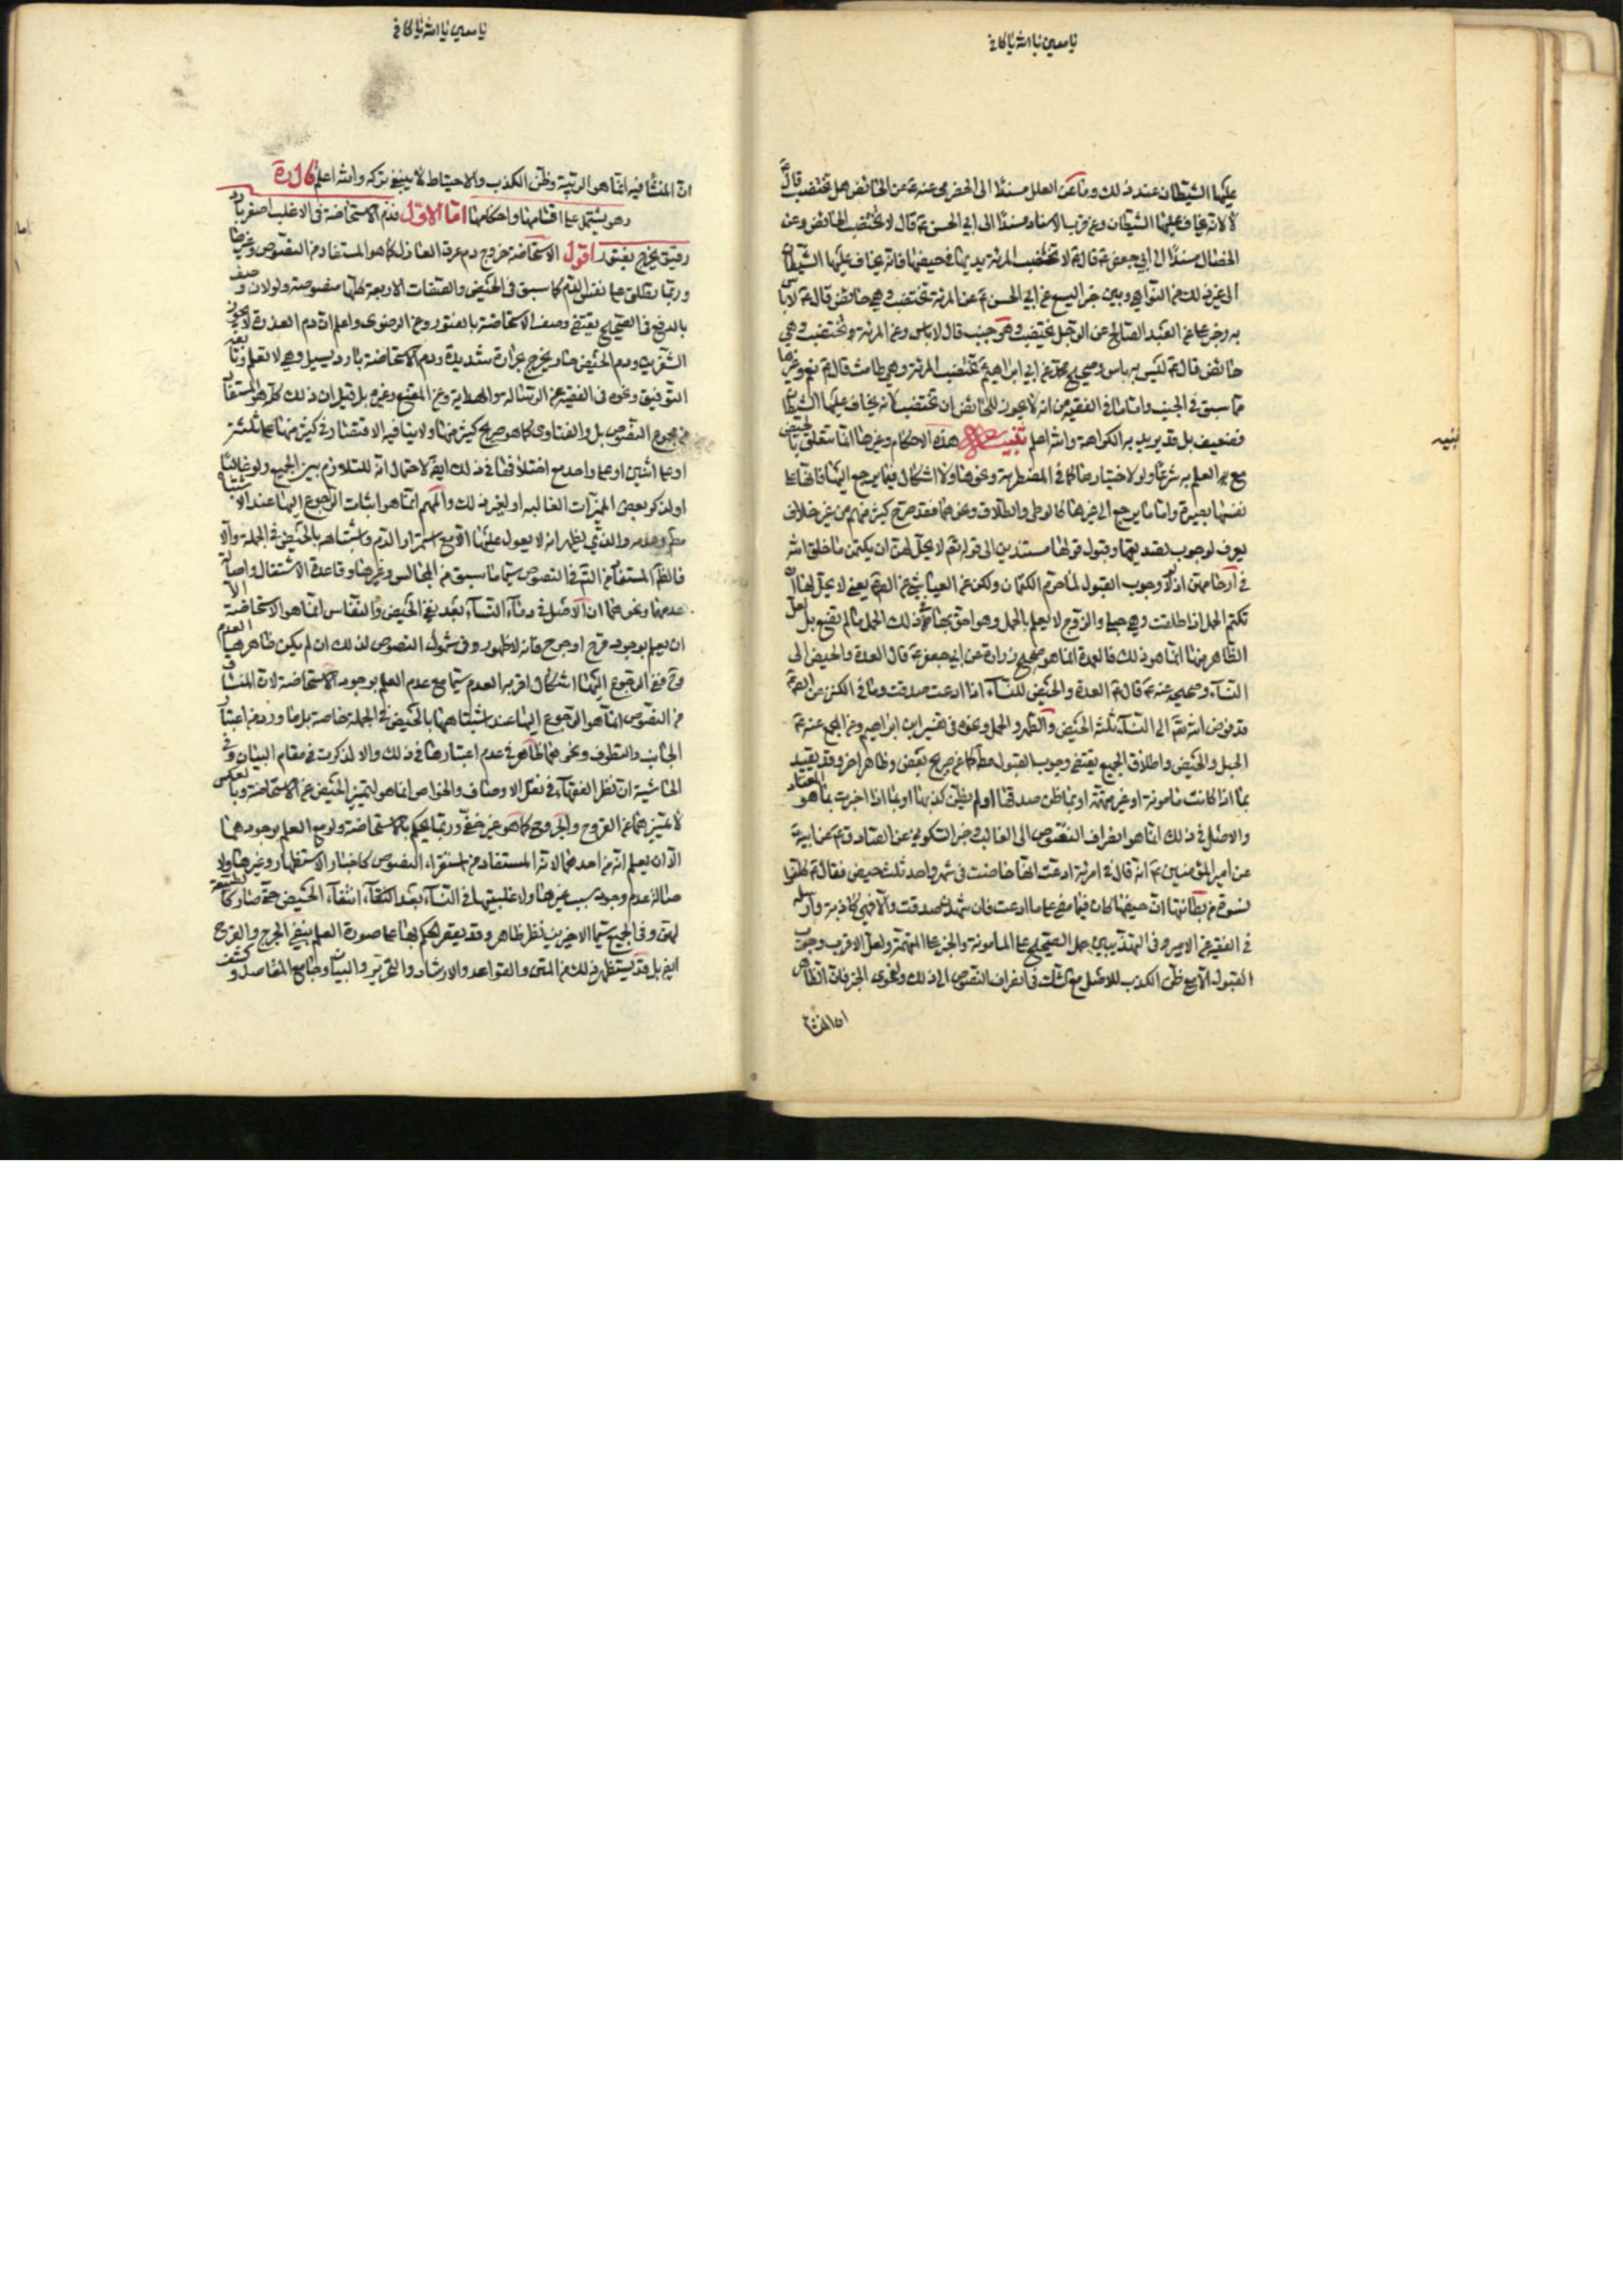 عليها الشيطان عند ذلك وما عن العلل مسندا الى الحضرمي عنه ع عن الحائض هل تختضب قال
لا لانه يخاف عليها الشيطان وعن قرب الاسناد مسندا الى ابي الحسن ع قال لا تختضب الحائض وعن
الخصال مسندا الى ابي جعفر ع قال لا تختضب المرئة يديها في حيضها فانه يخاف عليها الشيطان
الى غير ذلك من النواهي وبين خبر اليسع عن ابي الحسن ع عن المرئة تختضب وهي حائض قال ع لا باس
به وخبر علي عن العبد الصالح عن الرجل يختضب وهو جنب قال لا باس وعن المرئة تختضب وهي
حائض قال ع ليس به باس وصحيح محمد عن ابي ابراهيم ع تختضب المرئة وهي طامث قال ع نعم وغيرها
مما سبق في الجنب واما ما في الفقيه من انه لا يجوز للحائض ان تختضب لانه يخاف عليها الشيطان
فضعيف بل قد يريد به الكراهة والله اعلم تنبيه هذه الاحكام وغيرها انما تتعلق بالحيض
مع العلم به شرعا ولو لاختيارها كما في المضطربة ونحوها ولا اشكال فيما يرجع اليها فانها على
نفسها بصيرة واما ما يرجع الى غيرها كالوطي والطلاق ونحوهما فقد صرح كثير منهم من غير خلاف
يعرف لوجوب تصديقها وقبول قولها مستندين الى قوله تعالى لا يحل لهن ان يكتمن ما خلق الله
في ارحامهن اذ لولا وجوب القبول لما حرم الكتمان ولكن عن العياشي عن الصادق ع يعني لا يحل لها ان
تكتم الحمل اذا طلقت وهي حبلى والزوج لا يعلم بالحمل وهو احق بها في ذلك الحمل ما لم تضع بل لعل
الظاهر منها انما هو ذلك فالعمدة انما هو صحيح زرارة عن ابي جعفر ع قال العدة والحيض الى
النساء وصحيحه عنه ع قال ع العدة والحيض للنساء اذا ادعت صدقت وما في الكنز عن
قد فوض الله الى النساء ثلثة الحيض والطهر والحمل ونحوه في تفسير ابن ابراهيم وعن المجمع عنه ع
الحبل والحيض واطلاق الجميع يقتضي وجوب القبول مطلقا كما عن صريح بعض وظاهر اخر وقد يقيد
بما اذا كانت مامونة او غير متهمة او بما ظن صدقها او لم يظن كذبها او بما اذا اخبرت بما هو المعتاد
والاصل في ذلك انما هو انصراف النصوص الى الغالب وخبر السكوني عن الصادق ع عن ابيه ع
عن امير المؤمنين ع انه قال في امرئة ادعت انها حاضت في شهر واحد ثلث حيض فقال ع كلفوا
نسوة من بطانتها ان حيضها كان فيما مضى على ما ادعت فان شهدن صدقت والا فهي كاذبة وارسله
في الفقيه عن الامير وفي التهذيبين حمل الصحيح على المامونة والخبر على المتهمة ولعل الاقرب وجوب
القبول الا مع ظن الكذب للاصل مع الشك في انصراف النصوص الى ذلك ولفحوى الخبر فان الظاهر
ان المنشا فيه انما هو الريبة وظن الكذب والاحتياط لا ينبغي تركه والله اعلم
وهو يشتمل على اقسامها واحكامها اما الاول فدم الاستحاضة في الاغلب اصفر بارد
رقيق يخرج بفتور اقول الاستحاضة خروج دم عرق العاذل كما هو المستفاد من النصوص وغيرها
وربما يطلق على نفس الدم كما سبق في الحيض والصفات الاربعة كلها منصوصة ولولا ان وصف
بالدفع في الصحيح يقتضي وصف الاستحاضة بالفتور وعن الرضوي واعلم ان دم العذرة لا يجوز
الشفرين ودم الحيض حار يخرج بحرارة شديدة ودم الاستحاضة بارد يسيل وهي لا تعلم
التوفيق ونحوه في الفقيه عن الرسالة والهداية وعن المقنع وغيره بل قيل ان ذلك كله هو المستفاد
من مجموع النصوص بل والفتاوى كما هو صريح كثير منها ولا ينافيه الاقتصار في كثير منها على ثلثة
او على اثنين او على واحد مع اختلافها في ذلك ايضا لاحتمال انه للتلازم بين الجميع ولو غالبا
او لذكر بعض المميزات الغالبه او لغير ذلك والمهم انما هو اثبات الرجوع اليها عند الاشتباه
مطلقا وعدمه والذي يظهر انه لا يعول عليها الا مع استمرار الدم واشتباهه بالحيض في الجملة والا
فالظاهر المستفاد من النصوص سيما ما سبق من المجالس وغيرها وقاعدة الاشتغال واصالة
عدمها ونحوهما ان الاصل في دماء النساء بعد نفي الحيض والنفاس انما هو الاستحاضة الا
ان يعلم بوجود قرح او جرح فانه لا ظهور وفي شمول النصوص لذلك ان لم يكن ظاهرها العدم
وفي الرجوع اليها اشكال اقربه العدم سيما مع عدم العلم بوجود الاستحاضة لان المنساق
من النصوص انما هو الرجوع اليها عند اشتباهها بالحيض في الجملة خاصة بل ما ورد من اعتبار
الجانب والتطوق ونحوهما ظاهر في عدم اعتبارها في ذلك والا لذكرت في مقام البيان وفي
الحاشية ان نظر الفقهاء في نقل الاوصاف والخواص انما هو لتميز الحيض عن الاستحاضة وبالعكس
لا تميزهما عن القروح والجروح كما هو غير خفي وربما يحكم بالاستحاضة ولو مع العلم بوجودهما
الا ان يعلم انه من احدهما لانه المستفاد من استقراء النصوص كاخبار الاستظهار وغيرها ولا
صالة عدم وجود سبب غيرها ولاغلبيتها في النساء بعد انتفاء الحيض حتى صار كالطبيعة
لهن وفي الجميع سيما الاخيرين نظر ظاهر وقد يقصر الحكم بها على صورة العلم بنفي الجرح والقرح
ايضا بل قد يستظهر ذلك من المتن والقواعد والارشاد والتحرير والبيان وجامع المقاصد وكشف